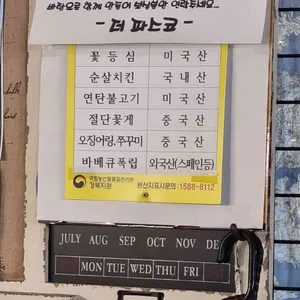 - 더 파스코 -
꽃등심 미국산
순살치킨 국내산
연탄불고기 미국산
절단꽃게 중국산
오징어링,쭈꾸미 중국산
바베큐폭립 외국산(스페인등)
국립농산물품질관리원
경북지원 원산지표시문의:1588-8112
JULY AUG SEP OCT NOV DE
MON TUE WED THU FRI